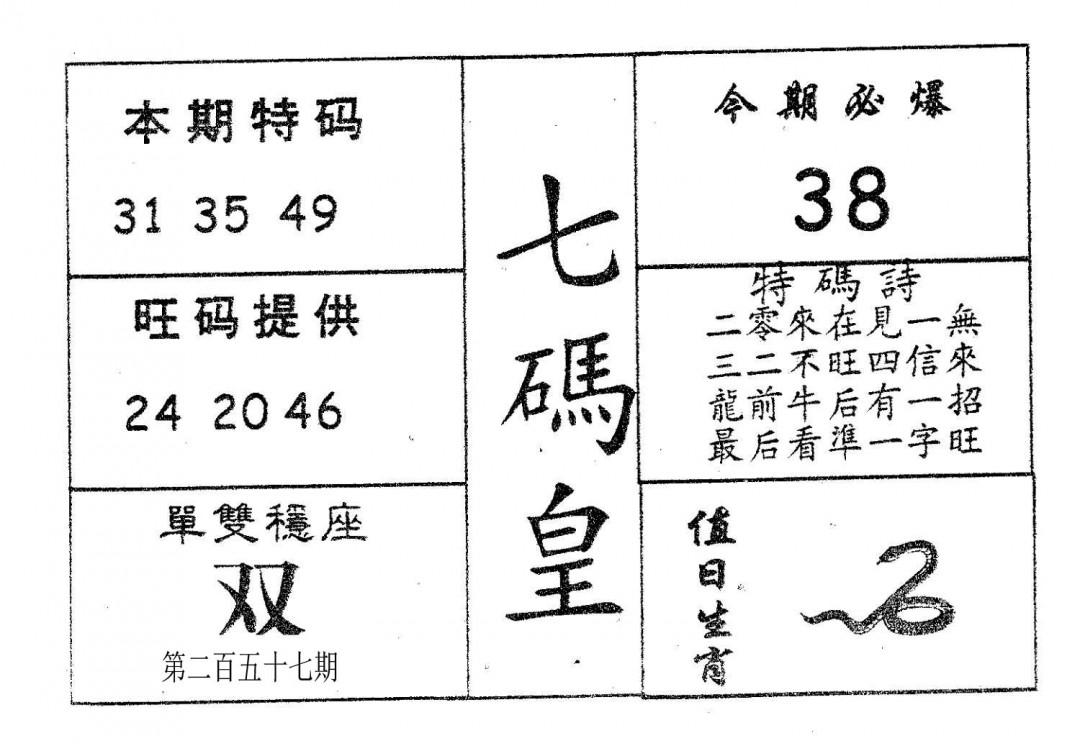 本期特码
31 35 49
旺码提供
24 20 46
單雙穩座
双
第二百五十七期
七碼皇
今期必爆
38
特碼詩
二零來在見一無
三二不旺四信來
龍前牛后有一招
最后看準一字旺
值日生肖